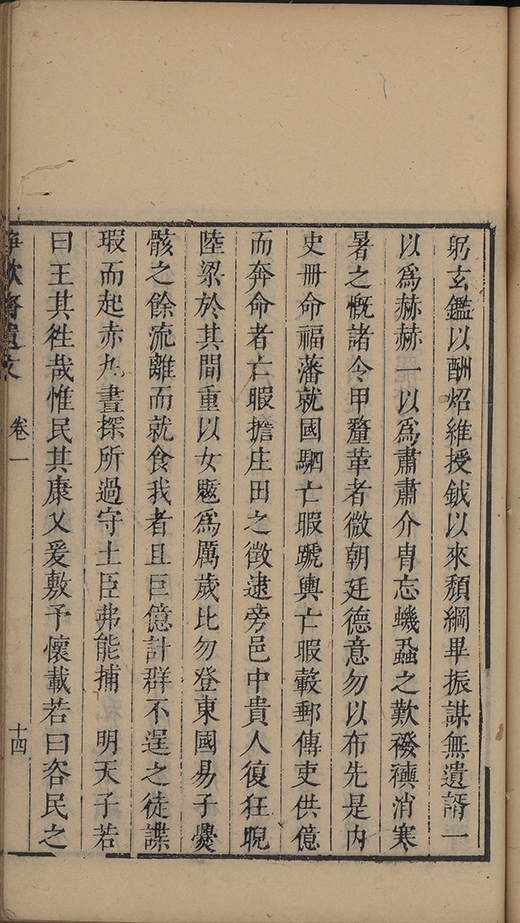 躬玄鑑以酬炤維授鉞以來頹綱畢振謀無遺諝一
以爲赫赫一以爲肅肅介胄忘蟣蝨之歎襏襫消寒
暑之慨諸令甲釐革者微朝廷德意勿以布先是內
史冊命福藩就國駟亡暇蹏輿亡暇轂郵傳吏供億
而奔命者亡暇擔庄田之徵逮旁邑中貴人復狂睨
陸梁於其間重以女魃爲厲歲比勿登東國易子爨
骸之餘流離而就食我者且巨億計群不逞之徒諜
瑕而起赤丸晝探所過守土臣弗能捕　明天子若
曰王其徃哉惟民其康乂爰敷予懷載若曰咨民之
齋遺文　卷一　十四